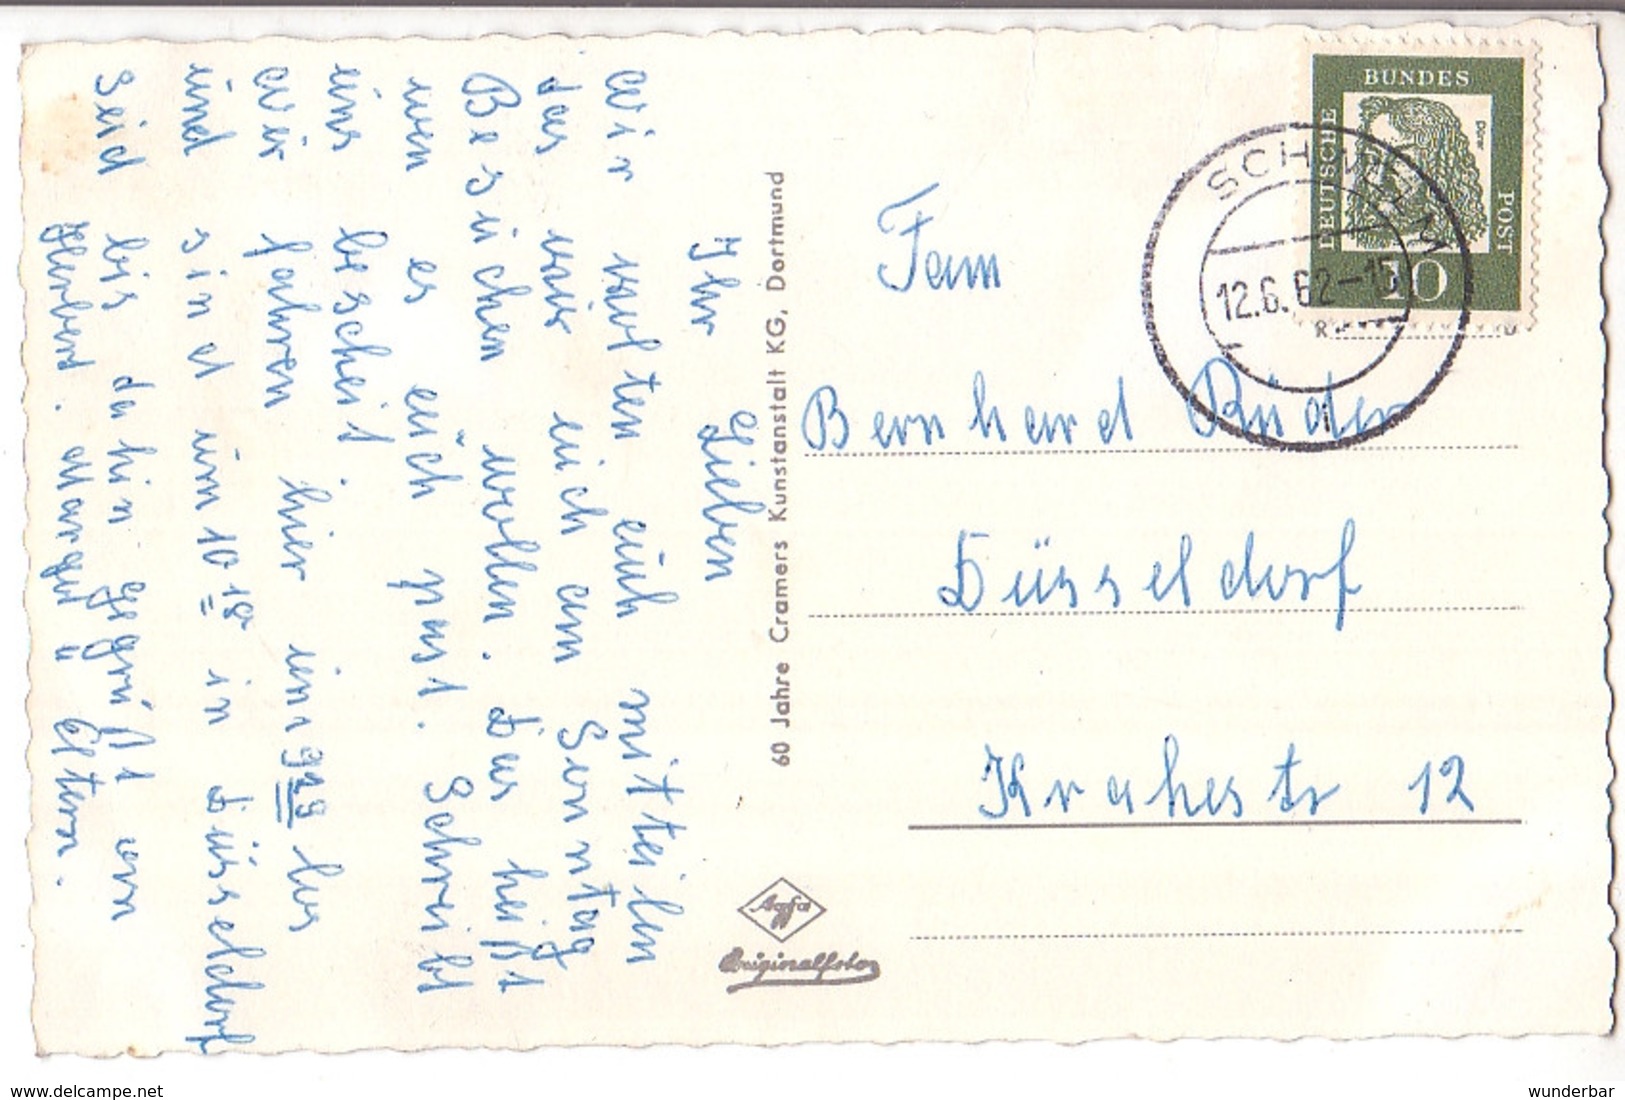 Ihr Lieben
Wir wolten eüch mitteilen
das wir eüch am Sonntag
Besüchen wollen. Das heißt
wen es eüch past. Schreibt
üns bescheit
Wir fahren hier üm 9 29 los
ünd sind üm 10 18 in Düsseldorf
Seid bis dahin gegrüßt von
Herbert. Margret ü Eltern.
60 Jahre Cramers Kunstanstalt KG, Dortmund
Agfa
Originalfoto
DEUTSCHE
BUNDES
POST
Dürer
10
SCHWELM
12.6.62-15
Fam
Bernhard Rüder
Düsseldorf
Krahestr 12
www.delcampe.net
wunderbar